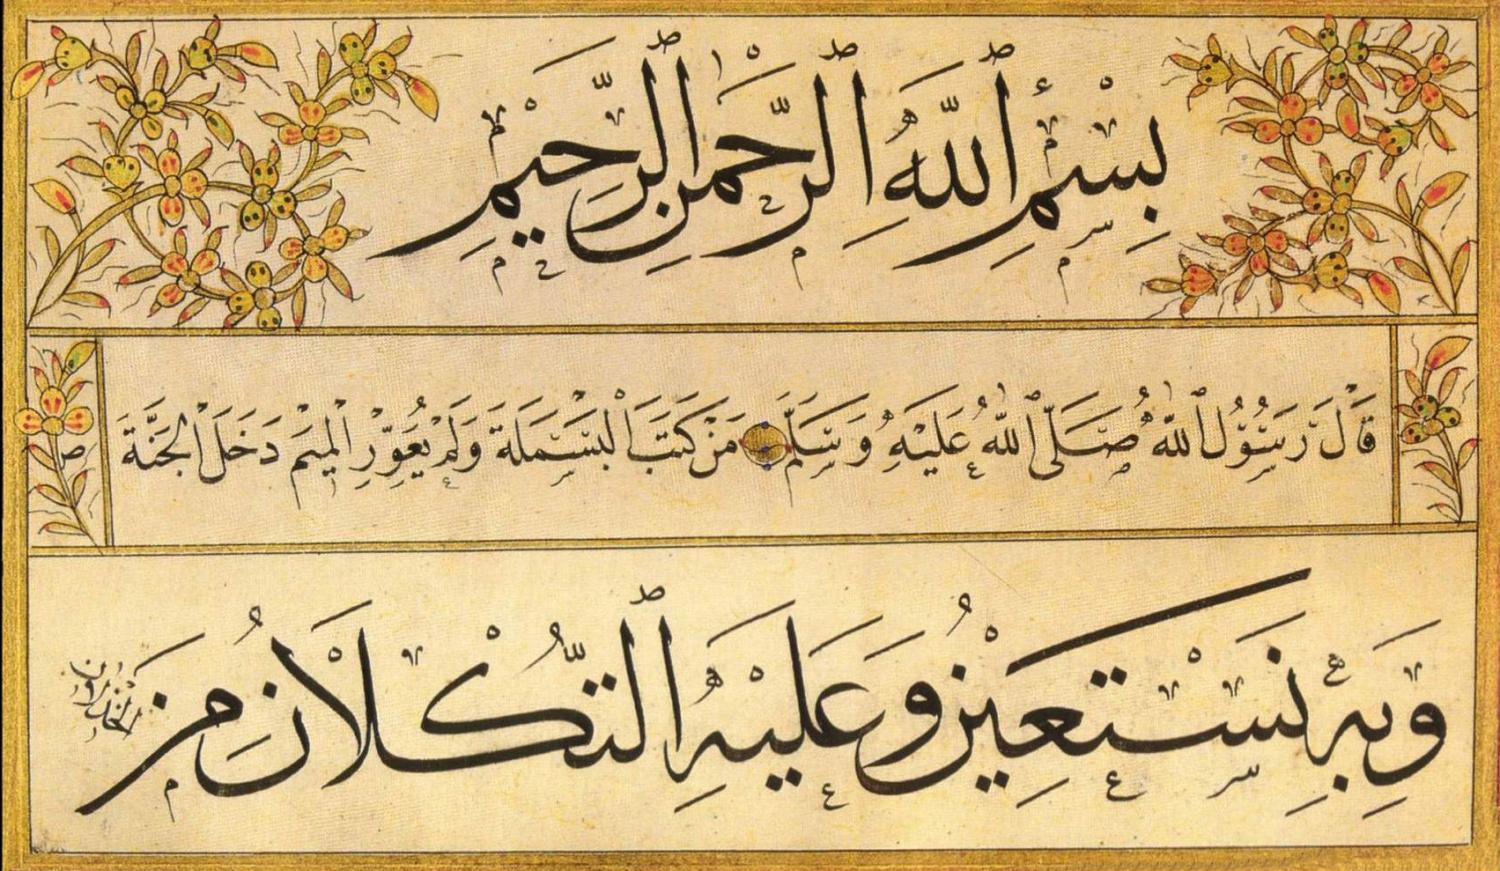 بِسْمِ ٱللَّهِ ٱلرَّحْمٰنِ ٱلرَّحِيْمِ
قَالَ رَسُوْلُ اللّٰهِ صَلَّى اللّٰهُ عَلَيْهِ وَسَلَّمَ مَنْ كَتَبَ الْبَسْمَلَةَ وَلَمْ يُعَوِّرِ الْمِيْمَ دَخَلَ الْجَنَّةَ
وَبِهِ نَسْتَعِيْنُ وَعَلَيْهِ ٱلتُّكْلَانُ مِنْ